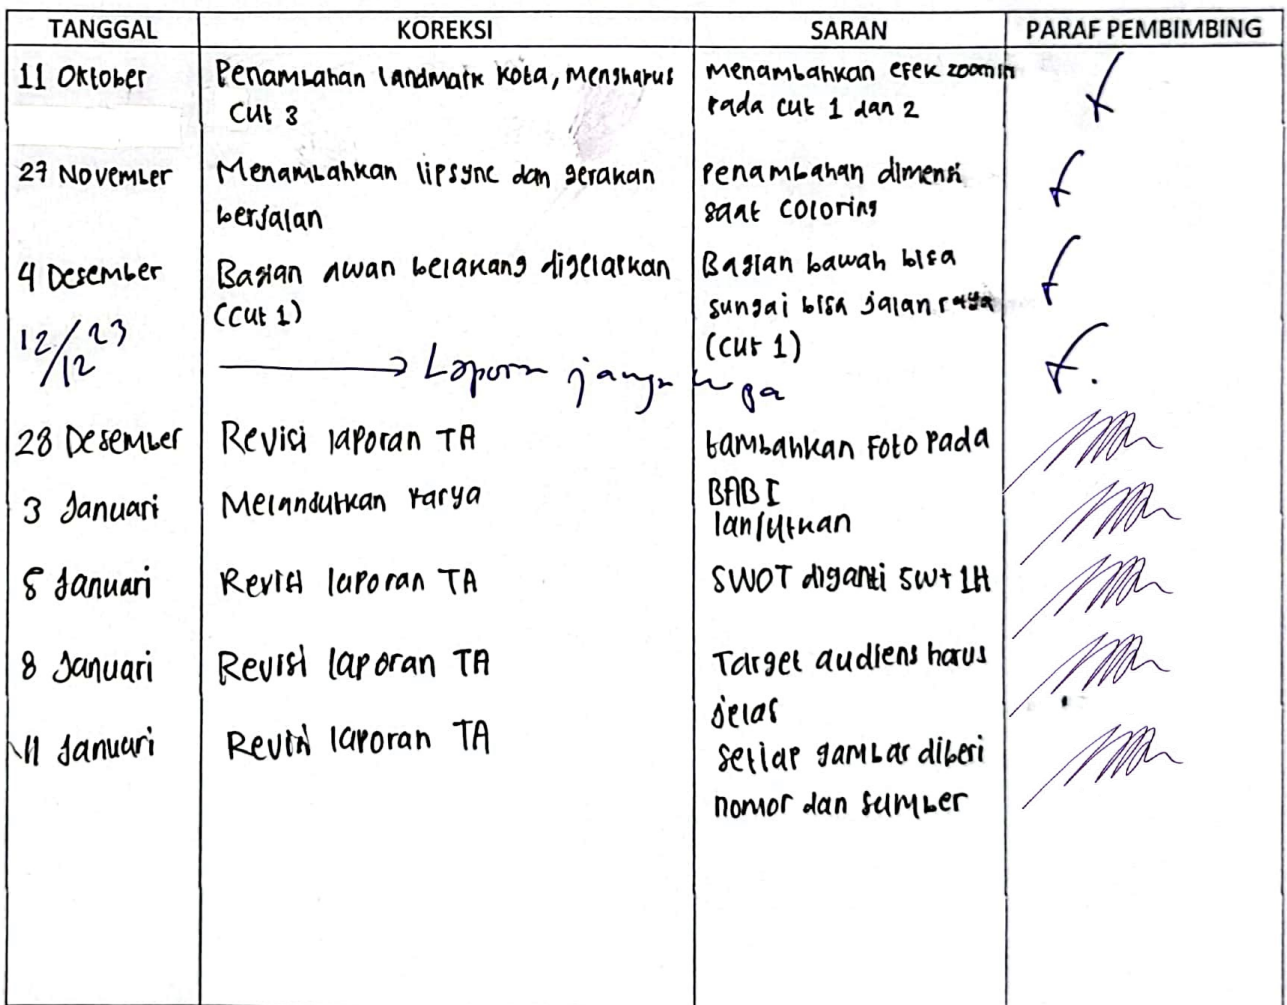 TANGGAL KOREKSI SARAN PARAF PEMBIMBING
11 Oktober Penambahan landmark kota, Menghapus menambahkan efek zoom in
Cut 3 pada cut 1 dan 2
27 November Menambahkan lipsync dan gerakan penambahan dimensi
berjalan saat coloring
4 Desember Bagian awan belakang digelapkan Bagian bawah bisa
(cut 1) sungai bisa jalan raya
(cut 1)
12/12 23 Laporan jangan lupa
28 Desember Revisi laporan TA tambahkan Foto pada
BAB I
3 Januari Melanjutkan karya lanjutkan
5 Januari Revisi laporan TA SWOT diganti 5w+1H
8 Januari Revisi laporan TA Target audiens harus
jelas
11 Januari Revisi laporan TA setiap gambar diberi
nomor dan sumber